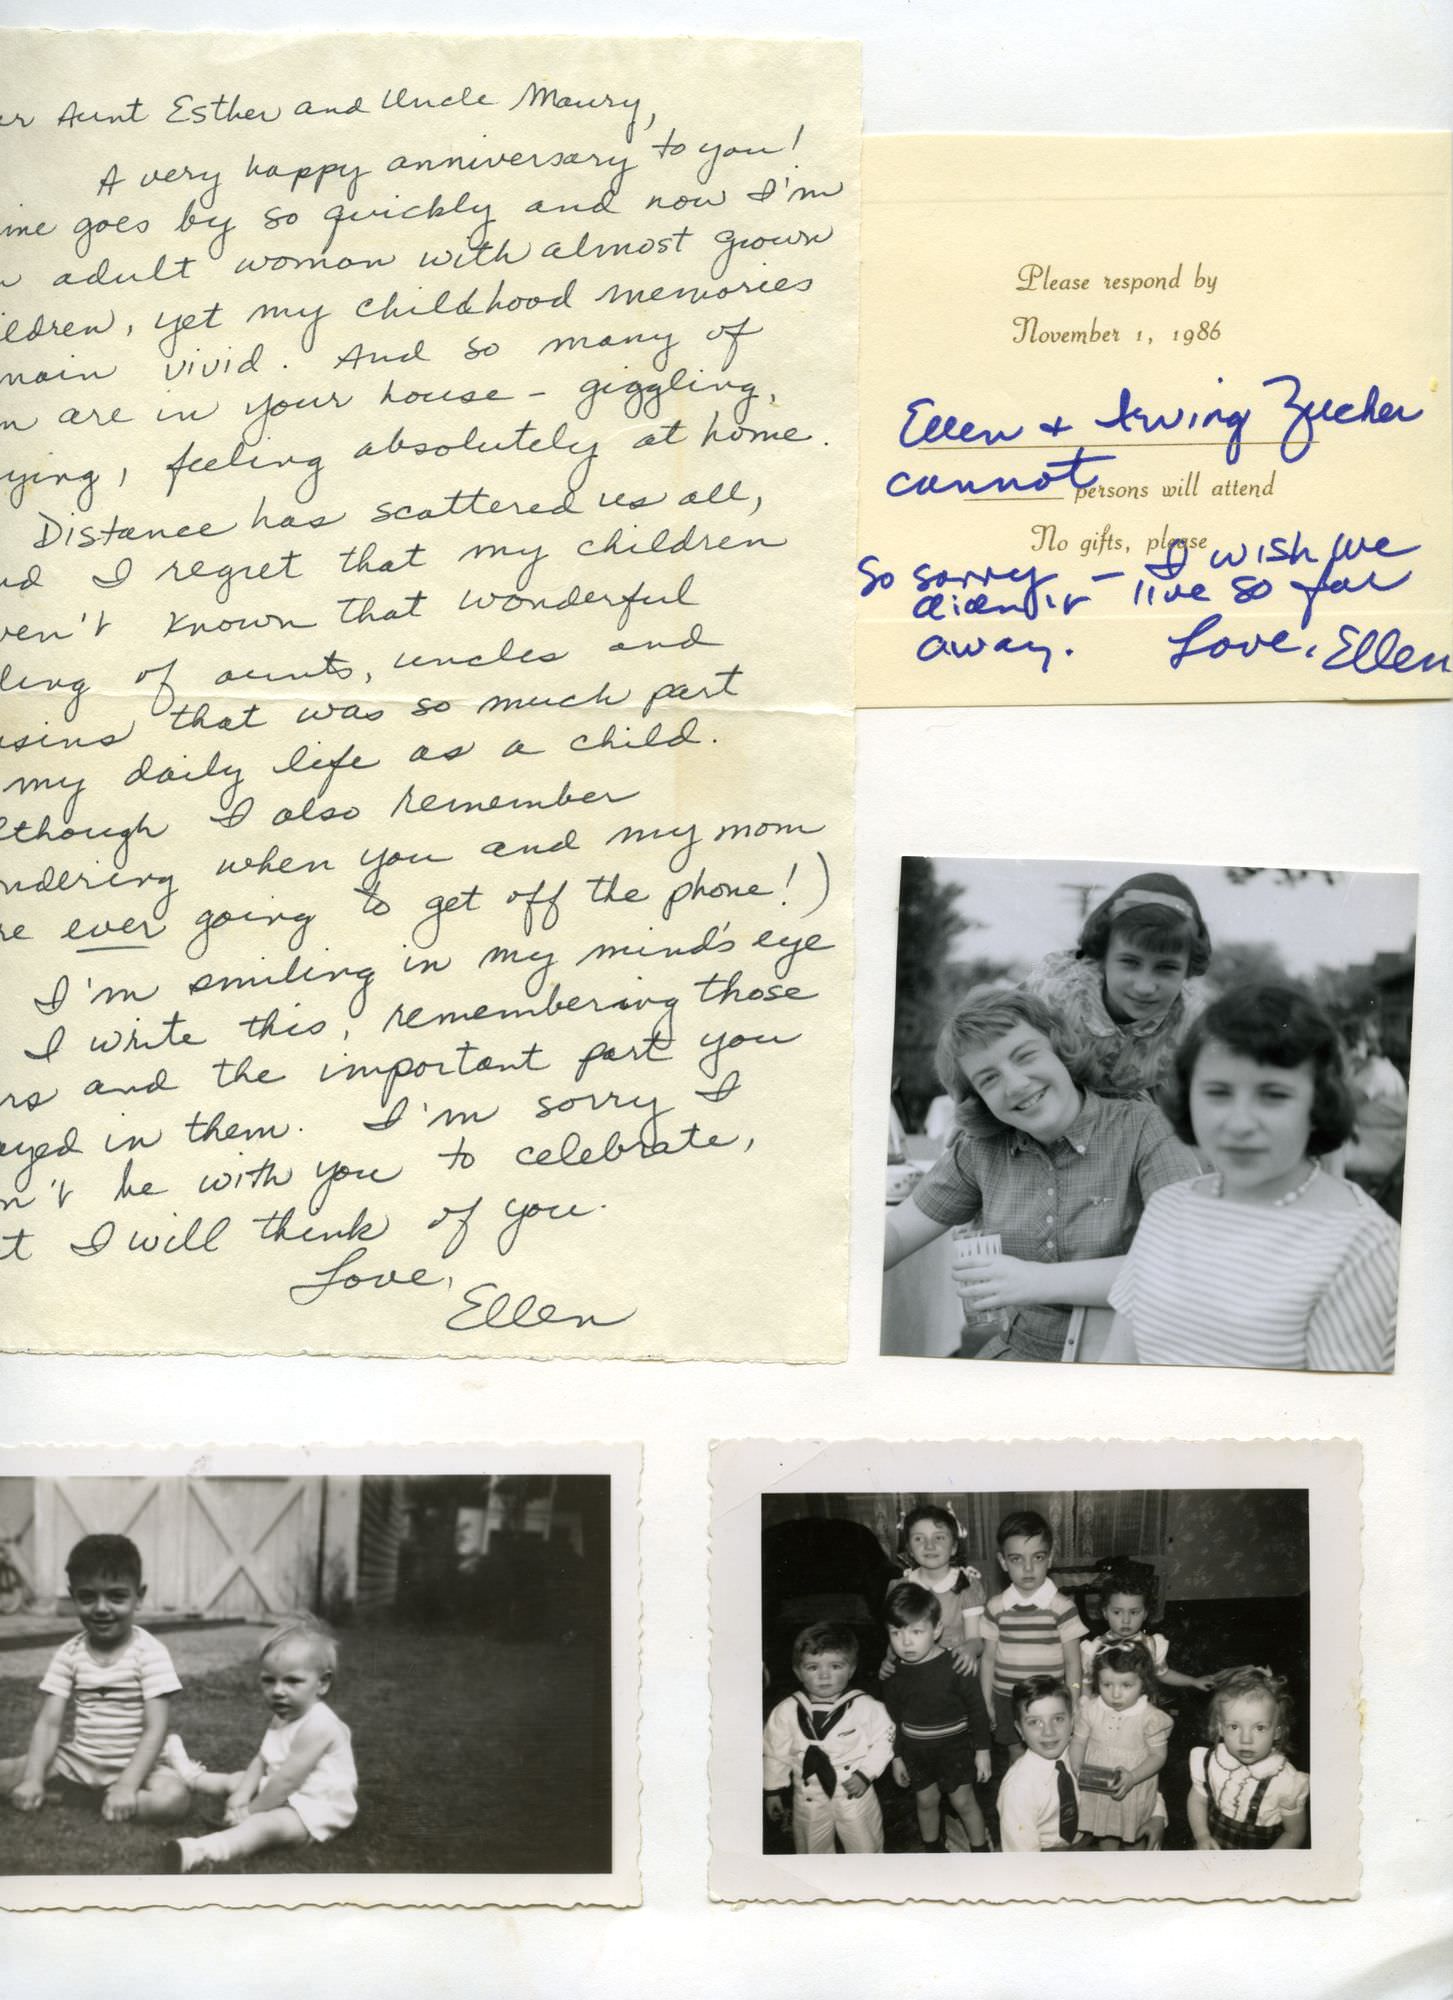 r Aunt Esther and Uncle Maury,
A very happy anniversary to you!
ime goes by so quickly and now I'm
adult woman with almost grown
ildren, yet my childhood memories
main vivid. And so many of
m are in your house - giggling,
ying, feeling absolutely at home.
Distance has scattered us all,
nd I regret that my children
ven't known that wonderful
ling of aunts, uncles and
usins that was so much part
my daily life as a child.
lthough I also remember
ndering when you and my mom
re ever going to get off the phone!)
I'm smiling in my mind's eye
I write this, remembering those
rs and the important part you
ayed in them. I'm sorry I
n't be with you to celebrate,
t I will think of you.
Love,
Ellen
Please respond by
November 1, 1986
Ellen + Irving Zucker
cannot persons will attend
No gifts, please
So sorry - I wish we
didn't live so far
away. Love, Ellen